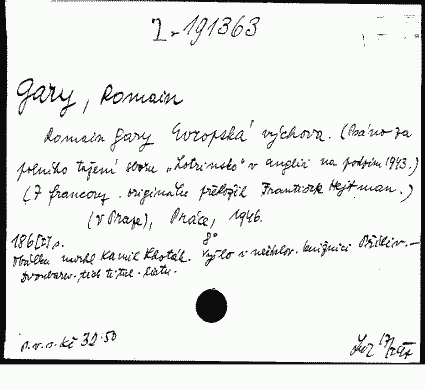 I-191363
Gary, Romain
Romain Gary Evropská výchova. (Psáno za
polního tažení sboru „Lotrinsko" v Anglii na podzim 1943.)
(Z francouz. originálu přeložil František Hejtman.)
(V Praze), Práce, 1946.
186 [I] s. 8°
Obálku navrhl Kamil Lhoták. Vyšlo v knižnici
Dvoubarev. titul. listu.
p.v.s. Kč 32·50